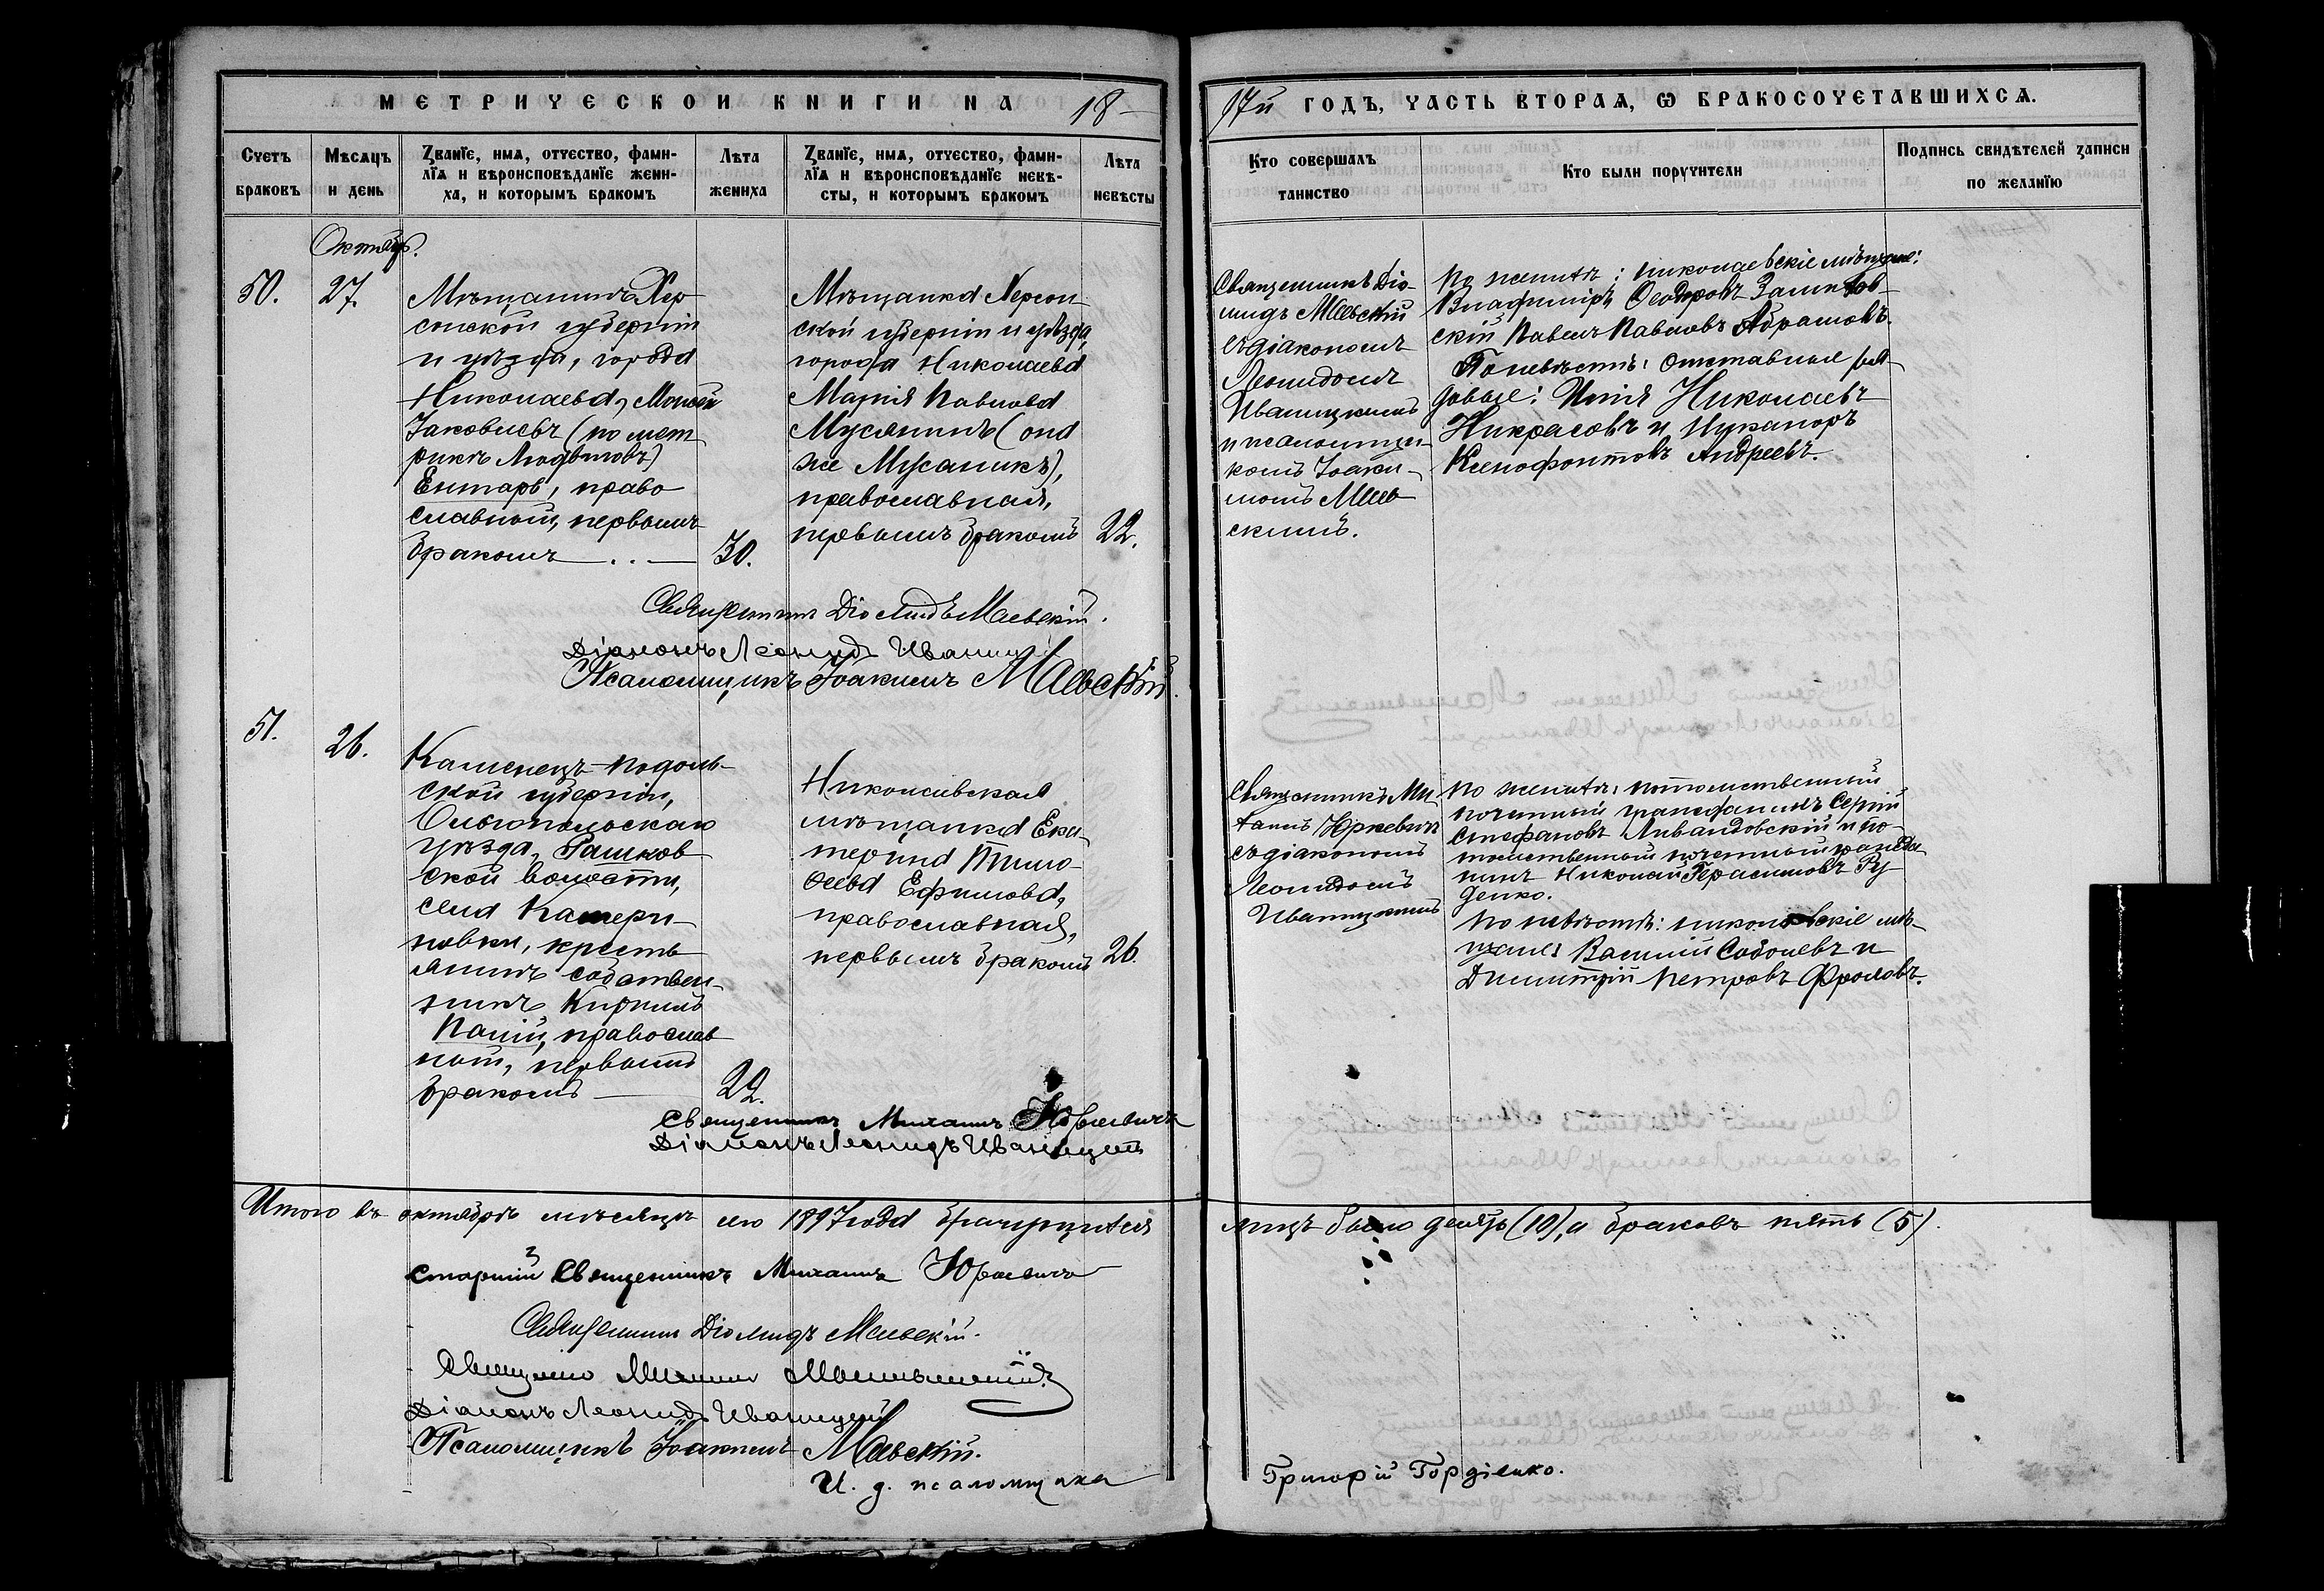 МЕТРИЧЕСКОЙ КНИГИ НА 18
97й ГОДЪ, ЧАСТЬ ВТОРАЯ, Ѡ БРАКОСОЧЕТАВШИХСЯ.
Счетъ браковъ
Мѣсяцъ и день
Званіе, имя, отчество, фами-
лія и вѣроисповѣданіе жени-
ха, и которымъ бракомъ
Лѣта жениха
Званіе, имя, отчество, фами-
лія и вѣроисповѣданіе невѣ-
сты, и которымъ бракомъ
Лѣта невѣсты
Кто совершалъ таинство
Кто были поручители
Подпись свидѣтелей записи
по желанію
Октябр.
50.
27.
Мѣщанинъ Хер
сонской губерніи
и уѣзда, города
Николаева, Моисей
Яковлевъ (по мет
рикѣ Людвиговъ)
Ентарь, право
славный, первымъ
бракомъ
30.
Мѣщанка Херсон
ской губерніи и уѣзда,
города Николаева
Марія Павлова
Мусянинъ (она
же Мусаникъ),
православная,
первымъ бракомъ
22.
Священникъ Діо-
мидъ Маевскій
съ діакономъ
Леонидомъ
Иваницкимъ
и псаломщи-
комъ Іоаки-
момъ Маев
скимъ.
По женихѣ: николаевскіе мѣщане:
Владиміръ Ѳеодоровъ
скій Павелъ Павловъ Абрамовъ.
По невѣстѣ: отставные ря-
довые: Илія Николаевъ
Никрасовъ и Никаноръ
Ксенофонтовъ Андреевъ.
Священникъ Діомидъ Маевскій.
Діаконъ Леонидъ Иваницкій
Псаломщикъ Іоакимъ Маевскій.
51.
26.
Каменецъ-Подоль-
ской губерніи,
Ольгопольскаго
уѣзда, Рашков
ской волости,
села Катери-
новки, кресть
янинъ собствен-
никъ Кириллъ
Палій, православ
ный, первымъ
бракомъ
29.
Николаевская
мѣщанка Ека-
терина Тимо-
ѳеева Ефимова,
православная,
первымъ бракомъ
26.
Священникъ Ми
хаилъ Юркевичъ
съ діакономъ
Леонидомъ
Иваницкимъ
По женихѣ: потомственный
почетный гражданинъ Сергій
Стефановъ Ливандовскій и по-
томственный почетный гражда
нинъ Николай Герасимовъ Ру
денко.
По невѣстѣ: николаевскіе мѣ-
щане: Василій Соболевъ и
Димитрій Петровъ Фроловъ.
Священникъ Михаилъ Юркевичъ
Діаконъ Леонидъ Иваницкій
Итого въ октябрѣ мѣсяцѣ сего 1897 года брачущихся лицъ было десять (10), а браковъ пять (5).
Старшій Священникъ Михаилъ Юркевичъ
Священникъ Діомидъ Маевскій.
Діаконъ Леонидъ Иваницкій
Псаломщикъ Іоакимъ Маевскій.
И. д. псаломщика Григорій Гордіенко.